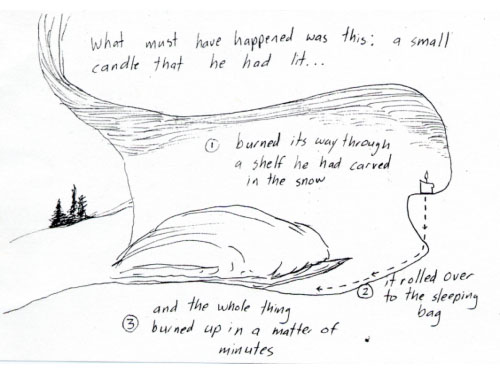 What must have happened was this: a small
candle that he had lit...
① burned its way through
a shelf he had carved
in the snow
② it rolled over
to the sleeping
bag
③ and the whole thing
burned up in a matter of
minutes